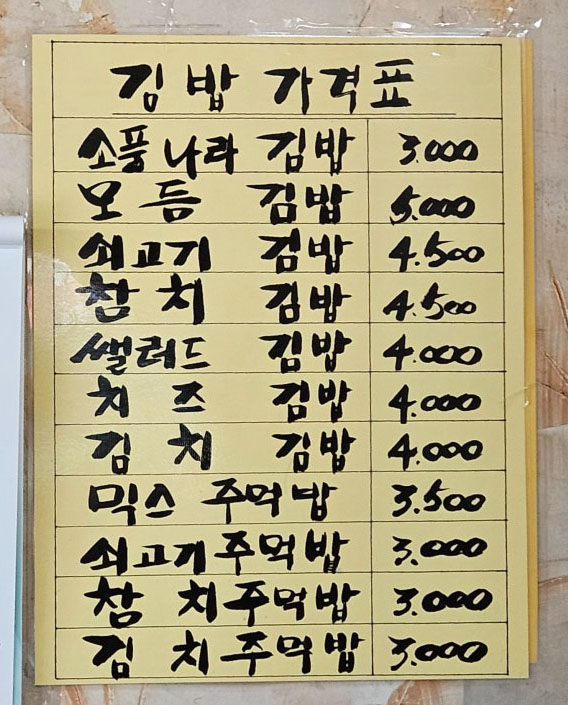 김밥 가격표
소풍나라 김밥 3.000
모듬 김밥 5.000
쇠고기 김밥 4.500
참치 김밥 4.500
쌜러드 김밥 4.000
치즈 김밥 4.000
김치 김밥 4.000
믹스 주먹밥 3.500
쇠고기주먹밥 3.000
참치주먹밥 3.000
김치주먹밥 3.000